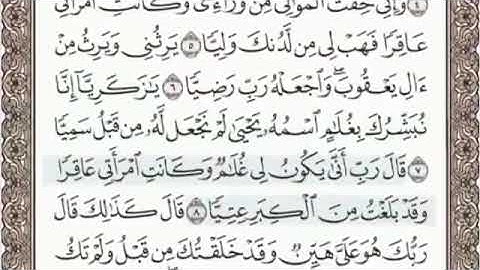 ٤ وَإِنِّي خِفْتُ ٱلْمَوَٰلِيَ مِن وَرَآءِي وَكَانَتِ ٱمْرَأَتِي
عَاقِرًا فَهَبْ لِي مِن لَّدُنكَ وَلِيًّا ٥ يَرِثُنِي وَيَرِثُ مِنْ
ءَالِ يَعْقُوبَۖ وَٱجْعَلْهُ رَبِّ رَضِيًّا ٦ يَٰزَكَرِيَّآ إِنَّا
نُبَشِّرُكَ بِغُلَٰمٍ ٱسْمُهُۥ يَحْيَىٰ لَمْ نَجْعَل لَّهُۥ مِن قَبْلُ سَمِيًّا
٧ قَالَ رَبِّ أَنَّىٰ يَكُونُ لِي غُلَٰمٌ وَكَانَتِ ٱمْرَأَتِي عَاقِرًا
وَقَدْ بَلَغْتُ مِنَ ٱلْكِبَرِ عِتِيًّا ٨ قَالَ كَذَٰلِكَ قَالَ
رَبُّكَ هُوَ عَلَيَّ هَيِّنٌ وَقَدْ خَلَقْتُكَ مِن قَبْلُ وَلَمْ تَكُ